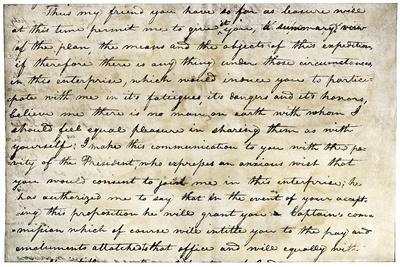 Thus my friend you have so far as leasure will
at this time permit me to give it you, a summary view
of the plan, the means and the objects of this expedition.
if therefore there is anything under those circumstances,
in this enterprise, which would induce you to partici-
pate with me in it's fatiegues, it's dangers and it's honors,
believe me there is no man on earth with whom I
should feel equal pleasure in sharing them as with
yourself; I make this communication to you with the pri-
vity of the President, who expresses an anxious wish that
you would consent to join me in this enterprise; he
has authorized me to say that in the event of your accep-
ting this proposition he will grant you a Captain's com-
mission which of course will intitle you to the pay and
emoluments attatched to that office and will equally with